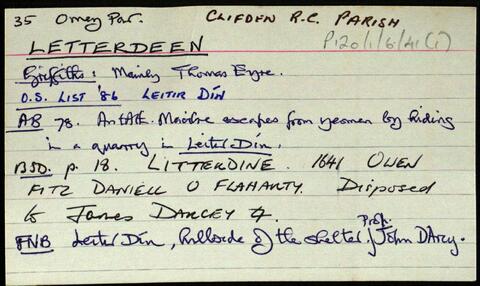 35 Omey Par. CLIFDEN R.C. PARISH
P120/1/6/41(i)
LETTERDEEN
Griffiths: Mainly Thomas Eyre.
O.S. LIST '86 LEITIR DÍN
AB 78. An tAth. Maoilre escapes from yeomen by hiding
in a quarry in Leitir Dín.
BSD. p. 18. LITTERDINE. 1641 OWEN
FITZ DANIELL O FLAHARTY. Disposed
to James DARCEY
FNB Leitir Dín, hillside of the shelter. Prop. John D'Arcy.